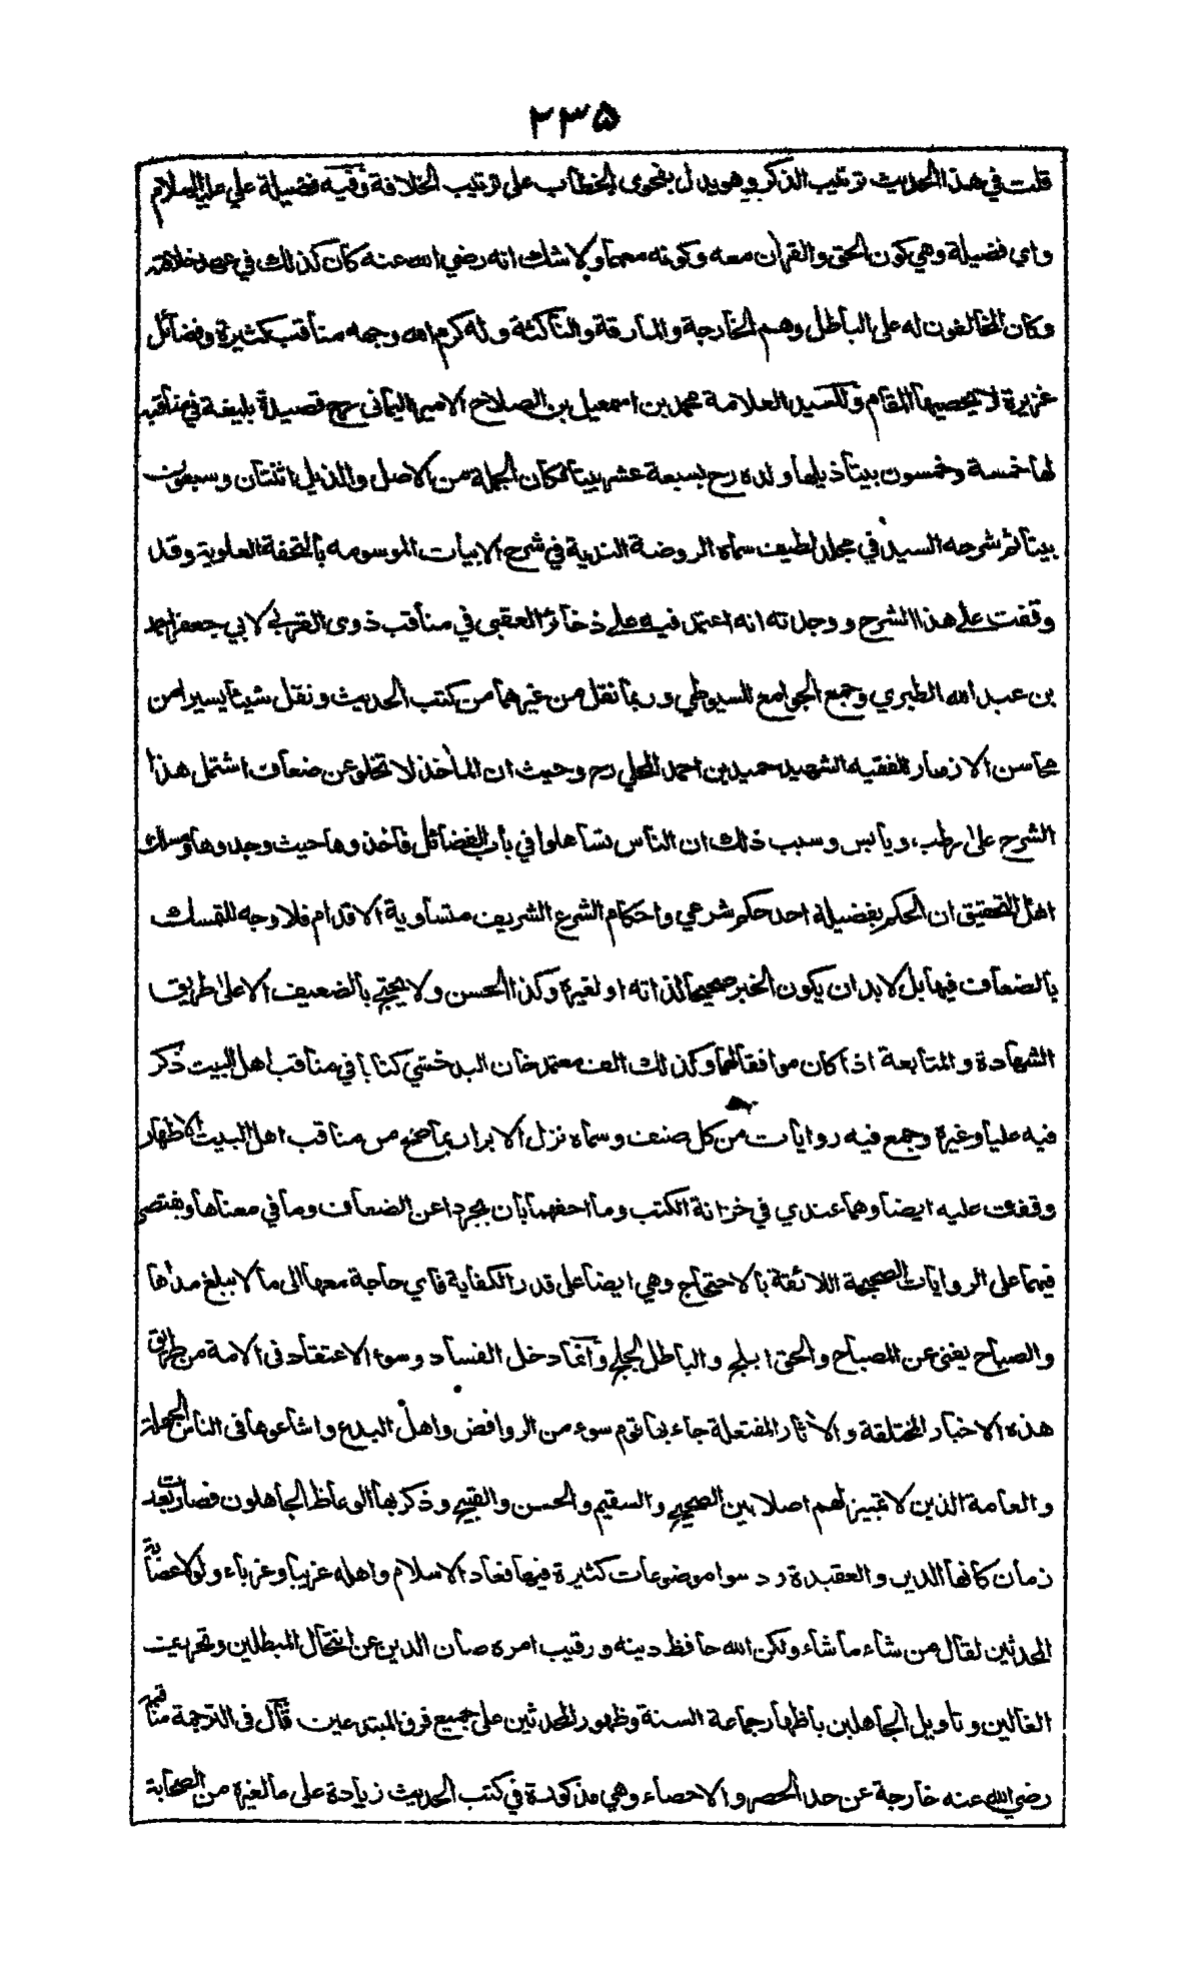 ٢٣٥
قلت في هذا الحديث ترتيب الذكر وهو يدل بفحوى الخطاب على ترتيب الخلافة وفيه فضيلة علي عليه السلام
واي فضيلة وهي كون الحق والقران معه وكونه معهما ولا شك انه رضي الله عنه كان كذلك في عهد خلافته
وكان المخالفون له على الباطل وهم الخارجة والمارقة والناكثة وله كرم الله وجهه مناقب كثيرة وفضائل
غزيرة لا يحصيها المقام وللسيد العلامة محمد بن اسمعيل بن الصلاح الامير اليماني رح قصيدة بليغة في مناقبه
لها خمسة وخمسون بيتا ذيلها ولده رح بسبعة عشر بيتا فكان الجملة من الاصل والذيل اثنتان وسبعون
بيتا ثم شرحه السيد في مجلد لطيف سماه الروضة الندية في شرح الابيات الموسومه بالتحفة العلوية وقد
وقفت على هذا الشرح ووجدته انه اعتمد فيه على ذخائر العقبى في مناقب ذوى القربى لابي جعفر احمد
بن عبد الله الطبري وجمع الجوامع للسيوطي وربما نقل من غيرهما من كتب الحديث ونقل شيئا يسيرا من
محاسن الازهار للفقيه الشهيد حميد بن احمد المحلي رح وحيث ان المأخذ لا تخلو عن ضعاف اشتمل هذا
الشرح على رطب ويابس وسبب ذلك ان الناس تساهلوا في باب الفضائل فأخذوها حيث وجدوها ومسلك
اهل التحقيق ان الحكم بفضيلة احد حكم شرعي واحكام الشرع الشريف متساوية الاقدام فلا وجه للتمسك
بالضعاف فيها بل لا بد ان يكون الخبر صحيحا لذاته او لغيره وكذا الحسن ولا يحتج بالضعيف الا على طريق
الشهادة والمتابعة اذا كان موافقا لهما وكذلك الف معتمد خان البدخشي كتابا في مناقب اهل البيت ذكر
فيه عليا وغيره وجمع فيه روايات من كل صنف وسماه نزل الابرار بما صح من مناقب اهل البيت الاطهار
وقفت عليه ايضا وهما عندي في خزانة الكتب وما احقهما بان يجردا عن الضعاف وما في معناها ويقتصر
فيهما على الروايات الصحيحة اللائقة بالاحتجاج وهي ايضا على قدر الكفاية فاي حاجة معها الى ما لا يبلغ مداها
والصباح يغنى عن المصباح والحق ابلج والباطل لجلج وانما دخل الفساد وسوء الاعتقاد فى الامة من طريق
هذه الاخبار المختلقة والاثار المفتعلة جاء بها قوم سوء من الروافض واهل البدع واشاعوها فى الناس الجهلة
والعامة الذين لا تمييز لهم اصلا بين الصحيح والسقيم والحسن والقبيح وذكر بها الوعاظ الجاهلون فصارت بعد
زمان كانها الدين والعقيدة ودسوا موضوعات كثيرة فيها فعاد الاسلام واهله غريبا وغرباء ولولا عصابة
المحدثين لقال من شاء ما شاء ولكن الله حافظ دينه ورقيب امره صان الدين عن انتحال المبطلين وتحريف
الغالين وتاويل الجاهلين باظهار جماعة السنة وظهور المحدثين على جميع فرق المبتدعين قال فى الترجمة مناقبه
رضي الله عنه خارجة عن حد الحصر والاحصاء وهي مذكورة في كتب الحديث زيادة على ما لغيره من الصحابة